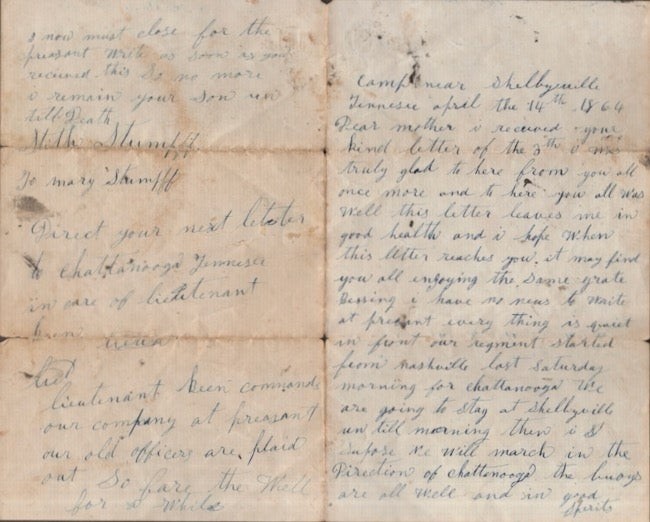 Camp near Shelbyville
Tennesee april the 14th 1864
Dear mother i received your
kind letter of the 3th i was
truly glad to here from you all
once more and to here you all was
well this letter leaves me in
good health and i hope when
this letter reaches you it may find
you all enjoying the same grate
blessing i have no news to write
at preasent every thing is quiet
in front our regment started
from nashville last Saturday
morning for chattanooga We
are going to stay at Shelbyville
un till morning then i
supose we will march in the
Direction of chattanooga the buoys
are all well and in good
Spirits
i now must close for the
preasant write as soon as you
recieved this So no more
i remain your Son un
till Death
Stumpff
To mary Stumpff
Direct your next letter
to Chattanooga Tennesee
in care of lieutenant
lieutenant Keen commands
our company at preasant
our old officers are plaid
out So fare the Well
for a While